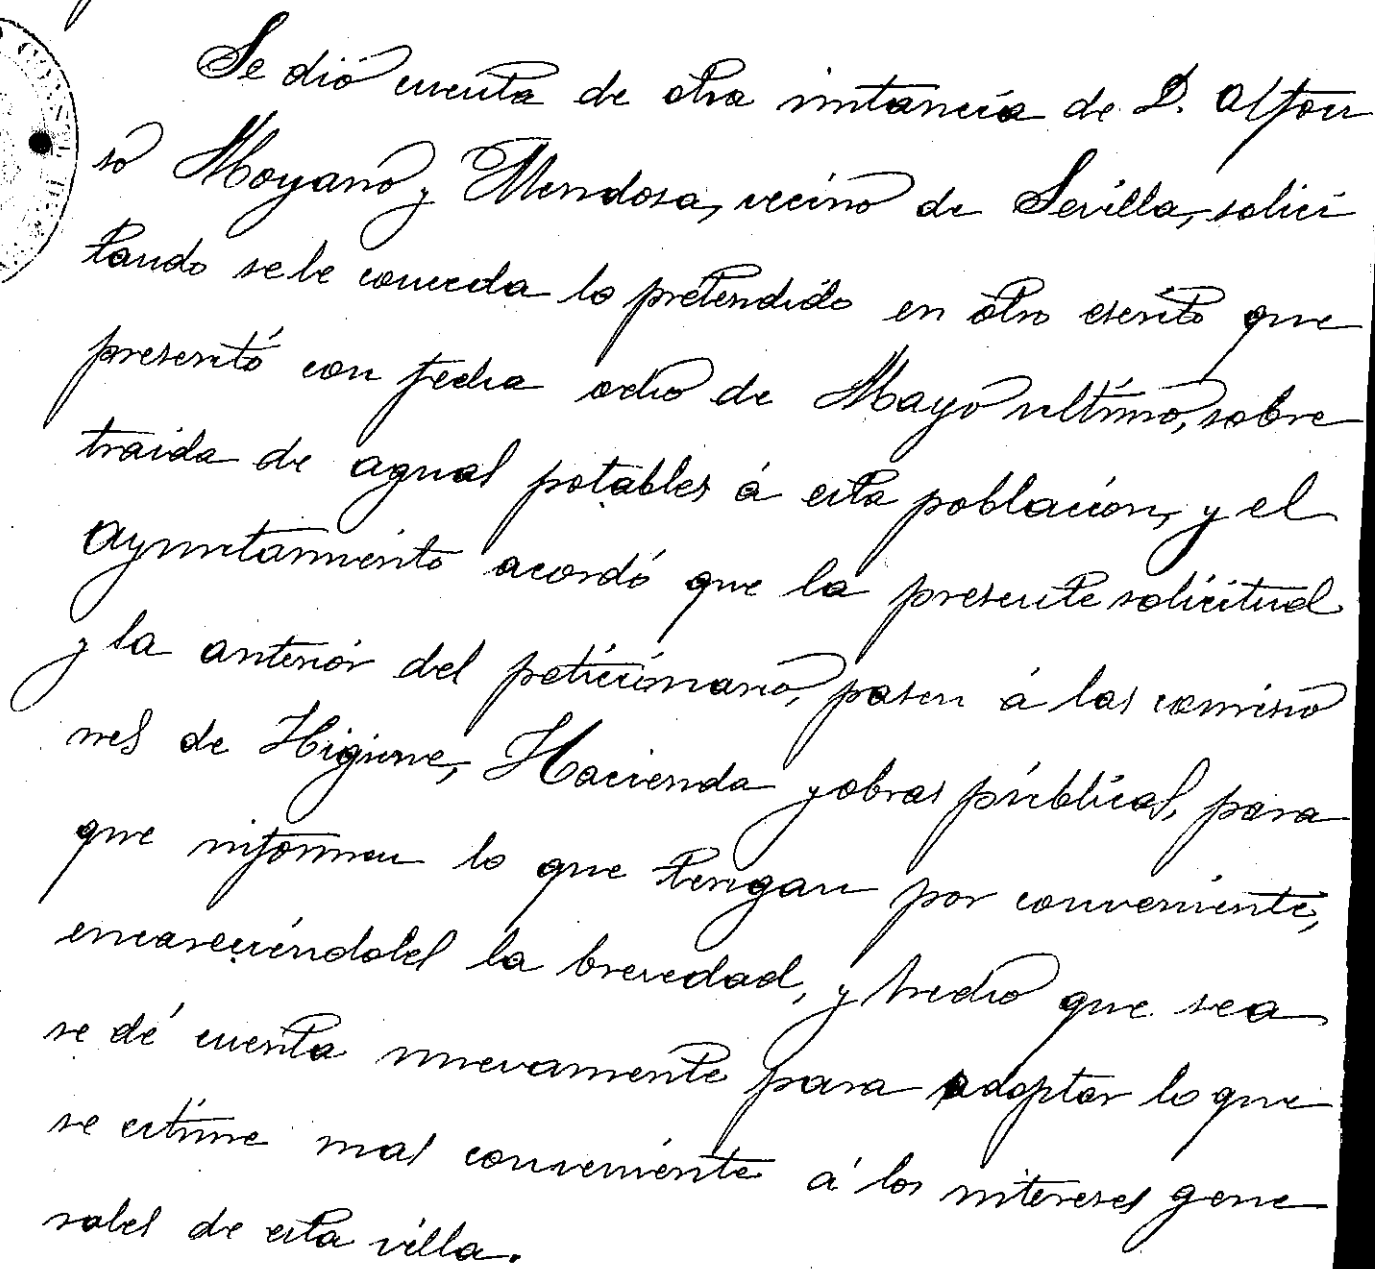 Se dió cuenta de otra instancia de D. Alfon
so Moyano y Mendosa, vecino de Sevilla, solici
tando se le conceda lo pretendido en otro escrito que
presentó con fecha ocho de Mayo ultimo, sobre
traida de aguas potables á esta poblacion, y el
Ayuntamiento acordó que la presente solicitud
y la anterior del peticionario, pasen á las comisio
nes de Higiene, Hacienda y obras públicas, para
que informen lo que tengan por conveniente,
encareciéndoles la brevedad, y hecho que sea
se dé cuenta nuevamente para adoptar lo que
se estime mas conveniente á los intereses gene
rales de esta villa.